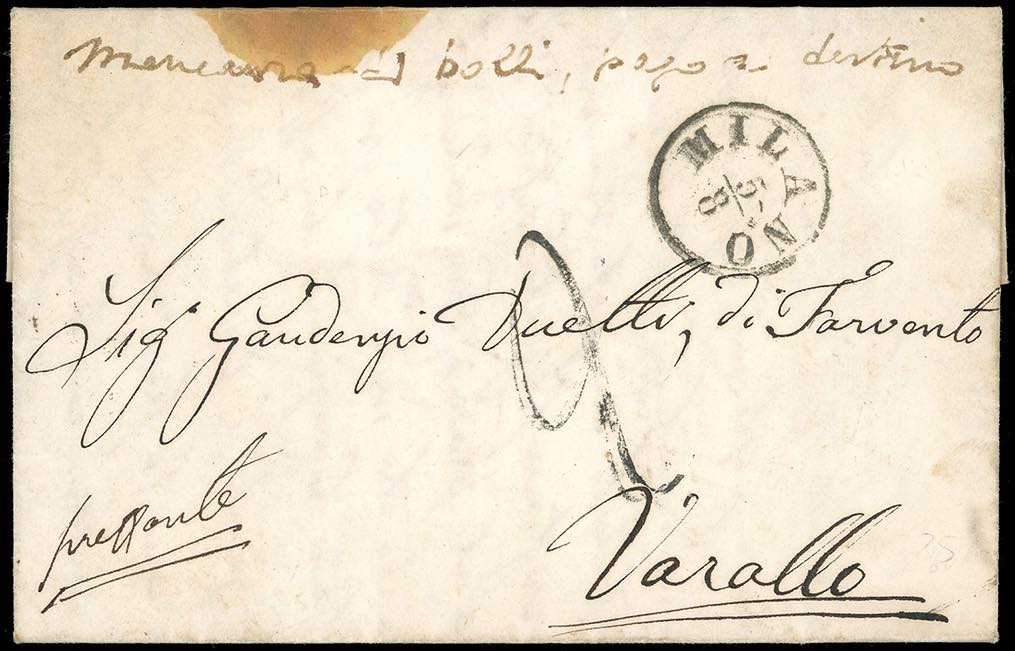 Mancanza di bolli, pago a destino
MILANO
5
8
2
Sigr Gaudenzio Duetti, di Farvento
pressante
Varallo
25